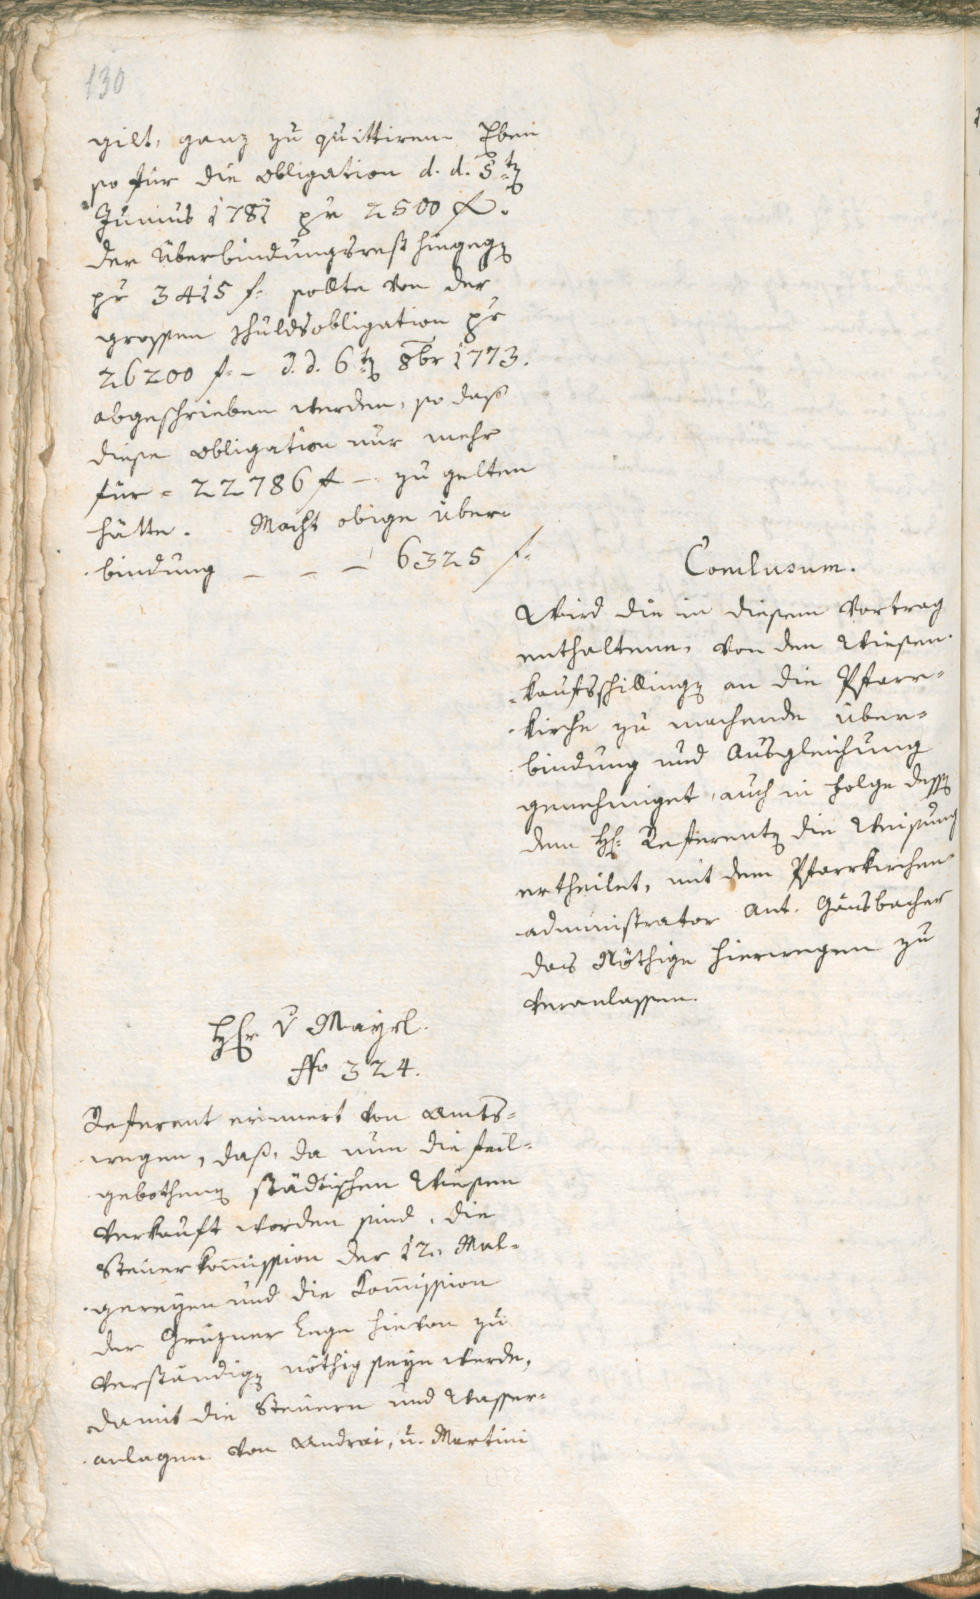 130
gilt, ganz zu quittiren. Eben
so für die Obligation d. d. 5tn
Junius 1781 pr 2500 f.
der Überbindungsrest hingegen
pr 3415 f. sollte von der
grossen Schuldsobligation pr
26200 f. – d. d. 6tn 8br 1773.
abgeschrieben werden, so daß
diese Obligation nur mehr
für = 22786 f – zu gelten
hätte. Macht obige Über-
bindung – – – 6325 f.
Conclusum.
Wird die in diesem Vortrag
enthaltene, von den Wiesen-
kaufsschilling an die Pfarr-
kirche zu machende Über-
bindung und Ausgleichung
genehmiget, auch in Folge dessen
dem H: Referenten die Weisung
ertheilet, mit dem Pfarrkirchen
administrator Ant. Gänsbacher
das Nöthige hierwegen zu
veranlassen.
Hr v Mayrl.
324.
Referent erinnert von Amts-
wegen, daß, da nun die feil-
gebothenen städtischen Wiesen
verkauft worden sind, die
Steuerkommission der 12 Mal-
greyen und die Kommission
der Grüzner Lege hievon zu
verständigen nöthig seyn werde,
damit die Steuern und Wasser-
anlagen von Andrai, u. Martini